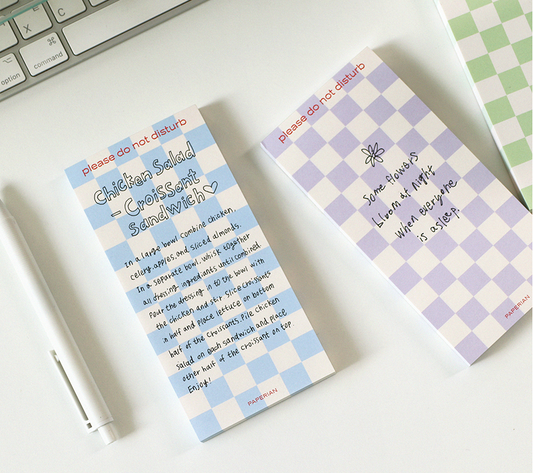 X
C
option
⌘
command
please do not disturb
Chicken Salad
- Croissant
Sandwich♡
In a large bowl. combine chicken,
celery, apples, and sliced almonds.
In a separate bowl, whisk together
all dressing ingredients until combined.
Pour the dressing in to the bowl with
the chicken and stir. Slice croissants
in half and place lettuce on bottom
half of the croissants. Pile chicken
salad on each sandwich and place
other half of the croissant on top
Enjoy!
PAPERIAN
please do not disturb
some flowers
bloom at night
when everyone
is asleep.
PAPERIAN